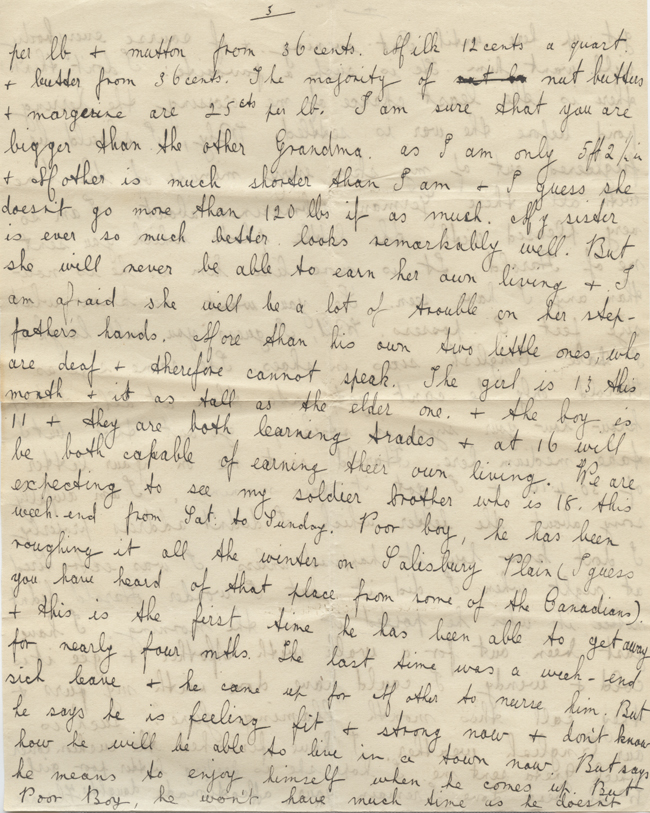 3
per lb + mutton from 36 cents. Milk 12 cents a quart.
+ butter from 36 cents. The majority of nut butters
+ margerine are 25cts per lb. I am sure that you are
bigger than the other Grandma. as I am only 5ft 2
+ Mother is much shorter than I am + I guess she
doesn't go more than 120 lbs if as much. My sister
is ever so much better. looks remarkably well. But
she will never be able to earn her own living + I
am afraid she will be a lot of trouble on her step-
fathers hands. More than his own two little ones, who
are deaf + therefore cannot speak. The girl is 13 this
month + is as tall as the elder one. + the boy is
11 + they are both learning trades + at 16 will
be both capable of earning their own living. We are
expecting to see my soldier brother who is 18. this
week-end from Sat. to Sunday. Poor boy, he has been
roughing it all the winter on Salisbury Plain (I guess
you have heard of that place from some of the Canadians).
+ this is the first time he has been able to get away
for nearly four mths. The last time was a week-end
sick leave + he came up for Mother to nurse him. But
he says he is feeling fit + strong now + don't know
how he will be able to live in a town now. But says
he means to enjoy himself when he comes up. But
Poor Boy, he won't have much time as he doesn't